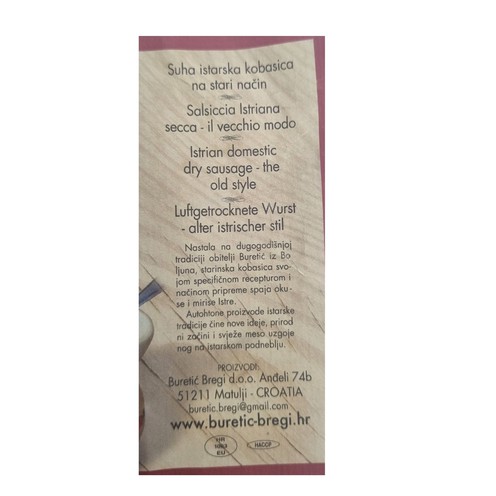 Suha istarska kobasica
na stari način
Salsiccia Istriana
secca - il vecchio modo
Istrian domestic
dry sausage - the
old style
Luftgetrocknete Wurst
- alter istrischer stil
Nastala na dugogodišnjoj
tradiciji obitelji Buretić iz Bo
ljuna, starinska kobasica svo-
jom specifičnom recepturom i
načinom pripreme spaja oku-
se i mirise Istre.
Autohtone proizvode istarske
tradicije čine nove ideje, prirod
ni začini i svježe meso uzgoje
nog na istarskom podneblju.
PROIZVODI:
Buretić Bregi d.o.o. Anđeli 74b
51211 Matulji - CROATIA
buretic.bregi@gmail.com
www.buretic-bregi.hr
HR
EU
HACCP